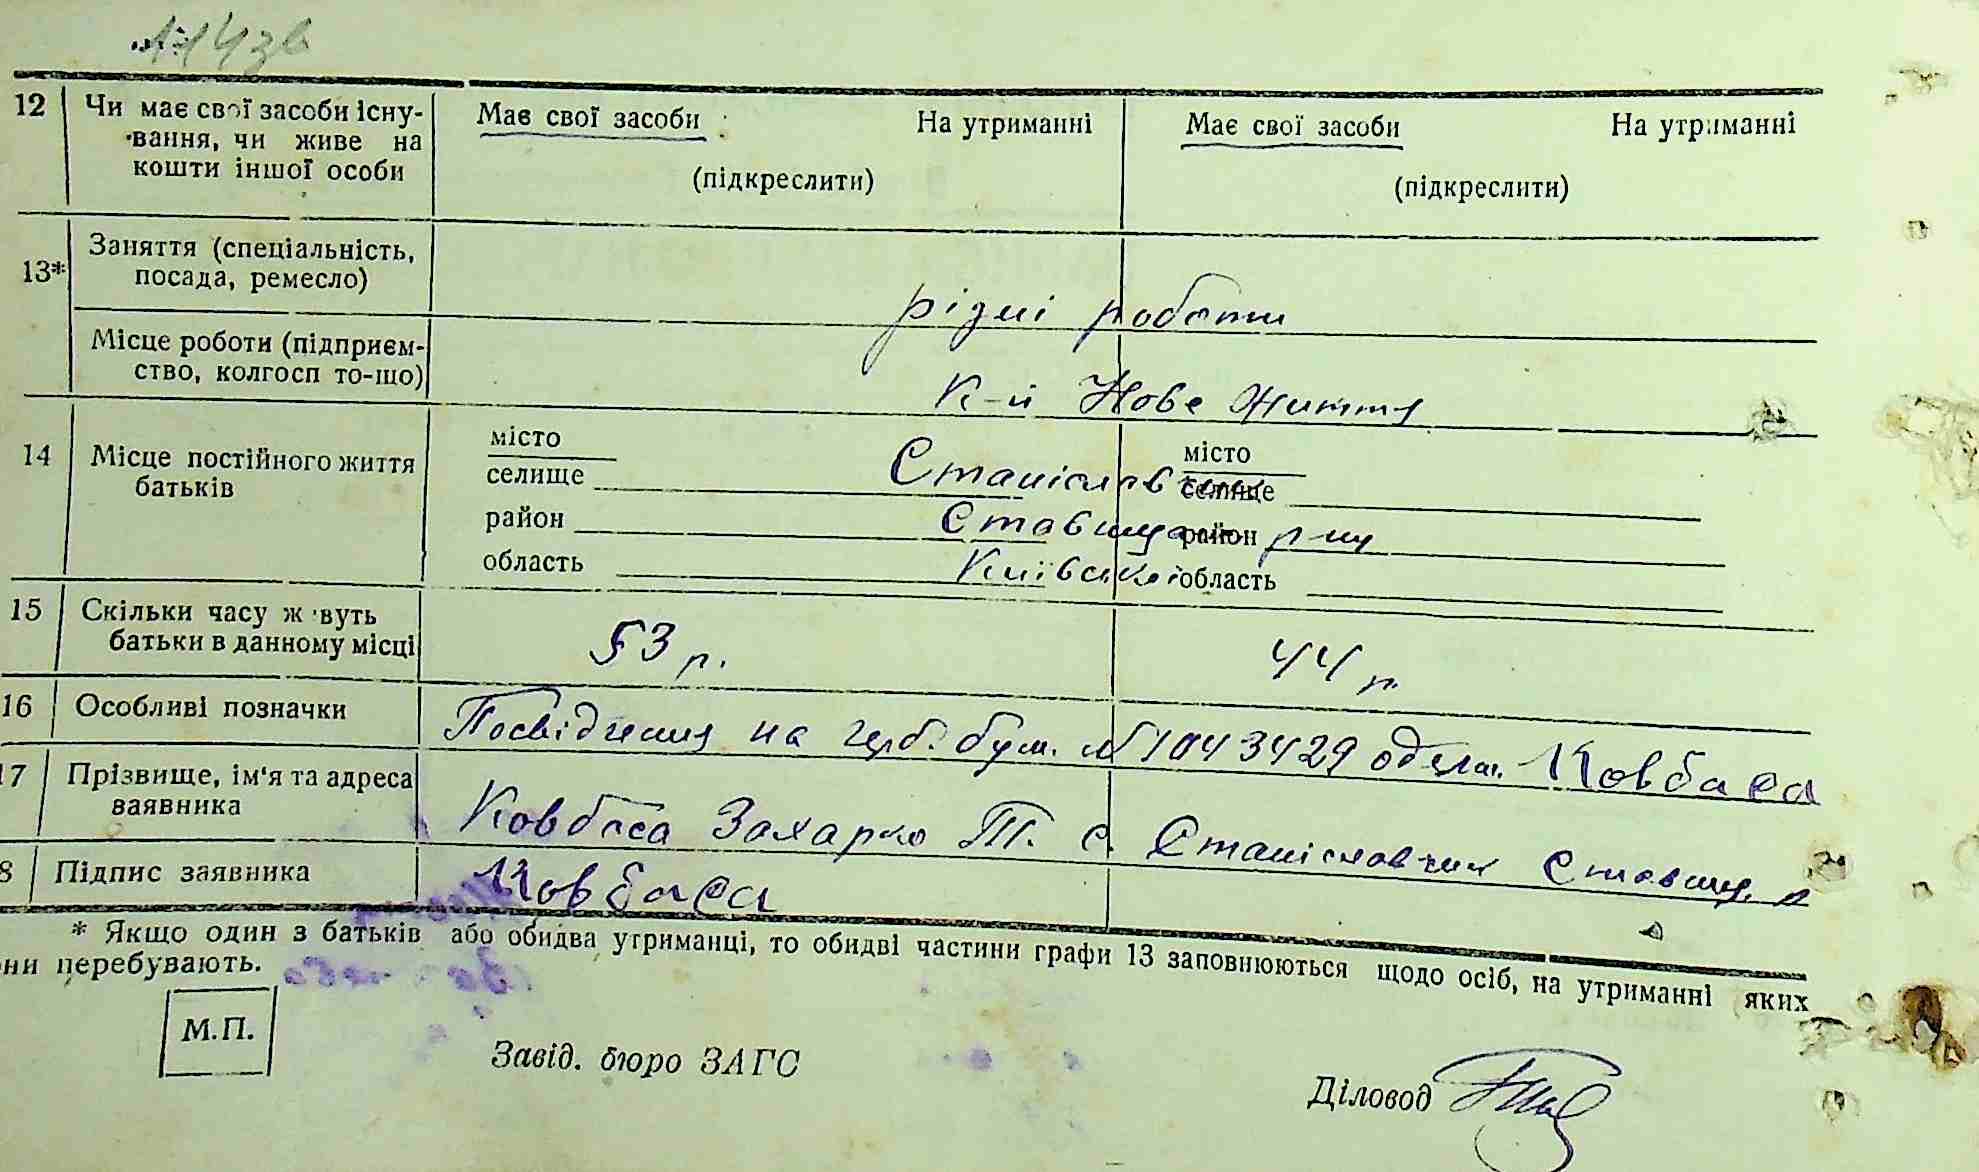 114зв
12 Чи має свої засоби існу-
вання, чи живе на
кошти іншої особи
Має свої засоби На утриманні
(підкреслити)
Має свої засоби На утриманні
(підкреслити)
13* Заняття (спеціальність,
посада, ремесло)
різні роботи
Місце роботи (підприєм-
ство, колгосп то-що)
К-п Нове Життя
14 Місце постійного життя
батьків
місто
селище
район
область
Станіславчик
Ставищан. р-ну
Київської
місто
селище
район
область
15 Скільки часу ж вуть
батьки в данному місці
53 р.
44 р
16 Особливі позначки
Посвідчення на герб. бум. № 1043429 одерж. Ковбаса
17 Прізвище, ім'я та адреса
заявника
Ковбаса Захарко Т. с. Станіславчик Ставищ. р
8 Підпис заявника
Ковбаса
* Якщо один з батьків або обидва утриманці, то обидві частини графи 13 заповнюються щодо осіб, на утриманні яких
ни перебувають.
М.П.
Завід. бюро ЗАГС
Діловод